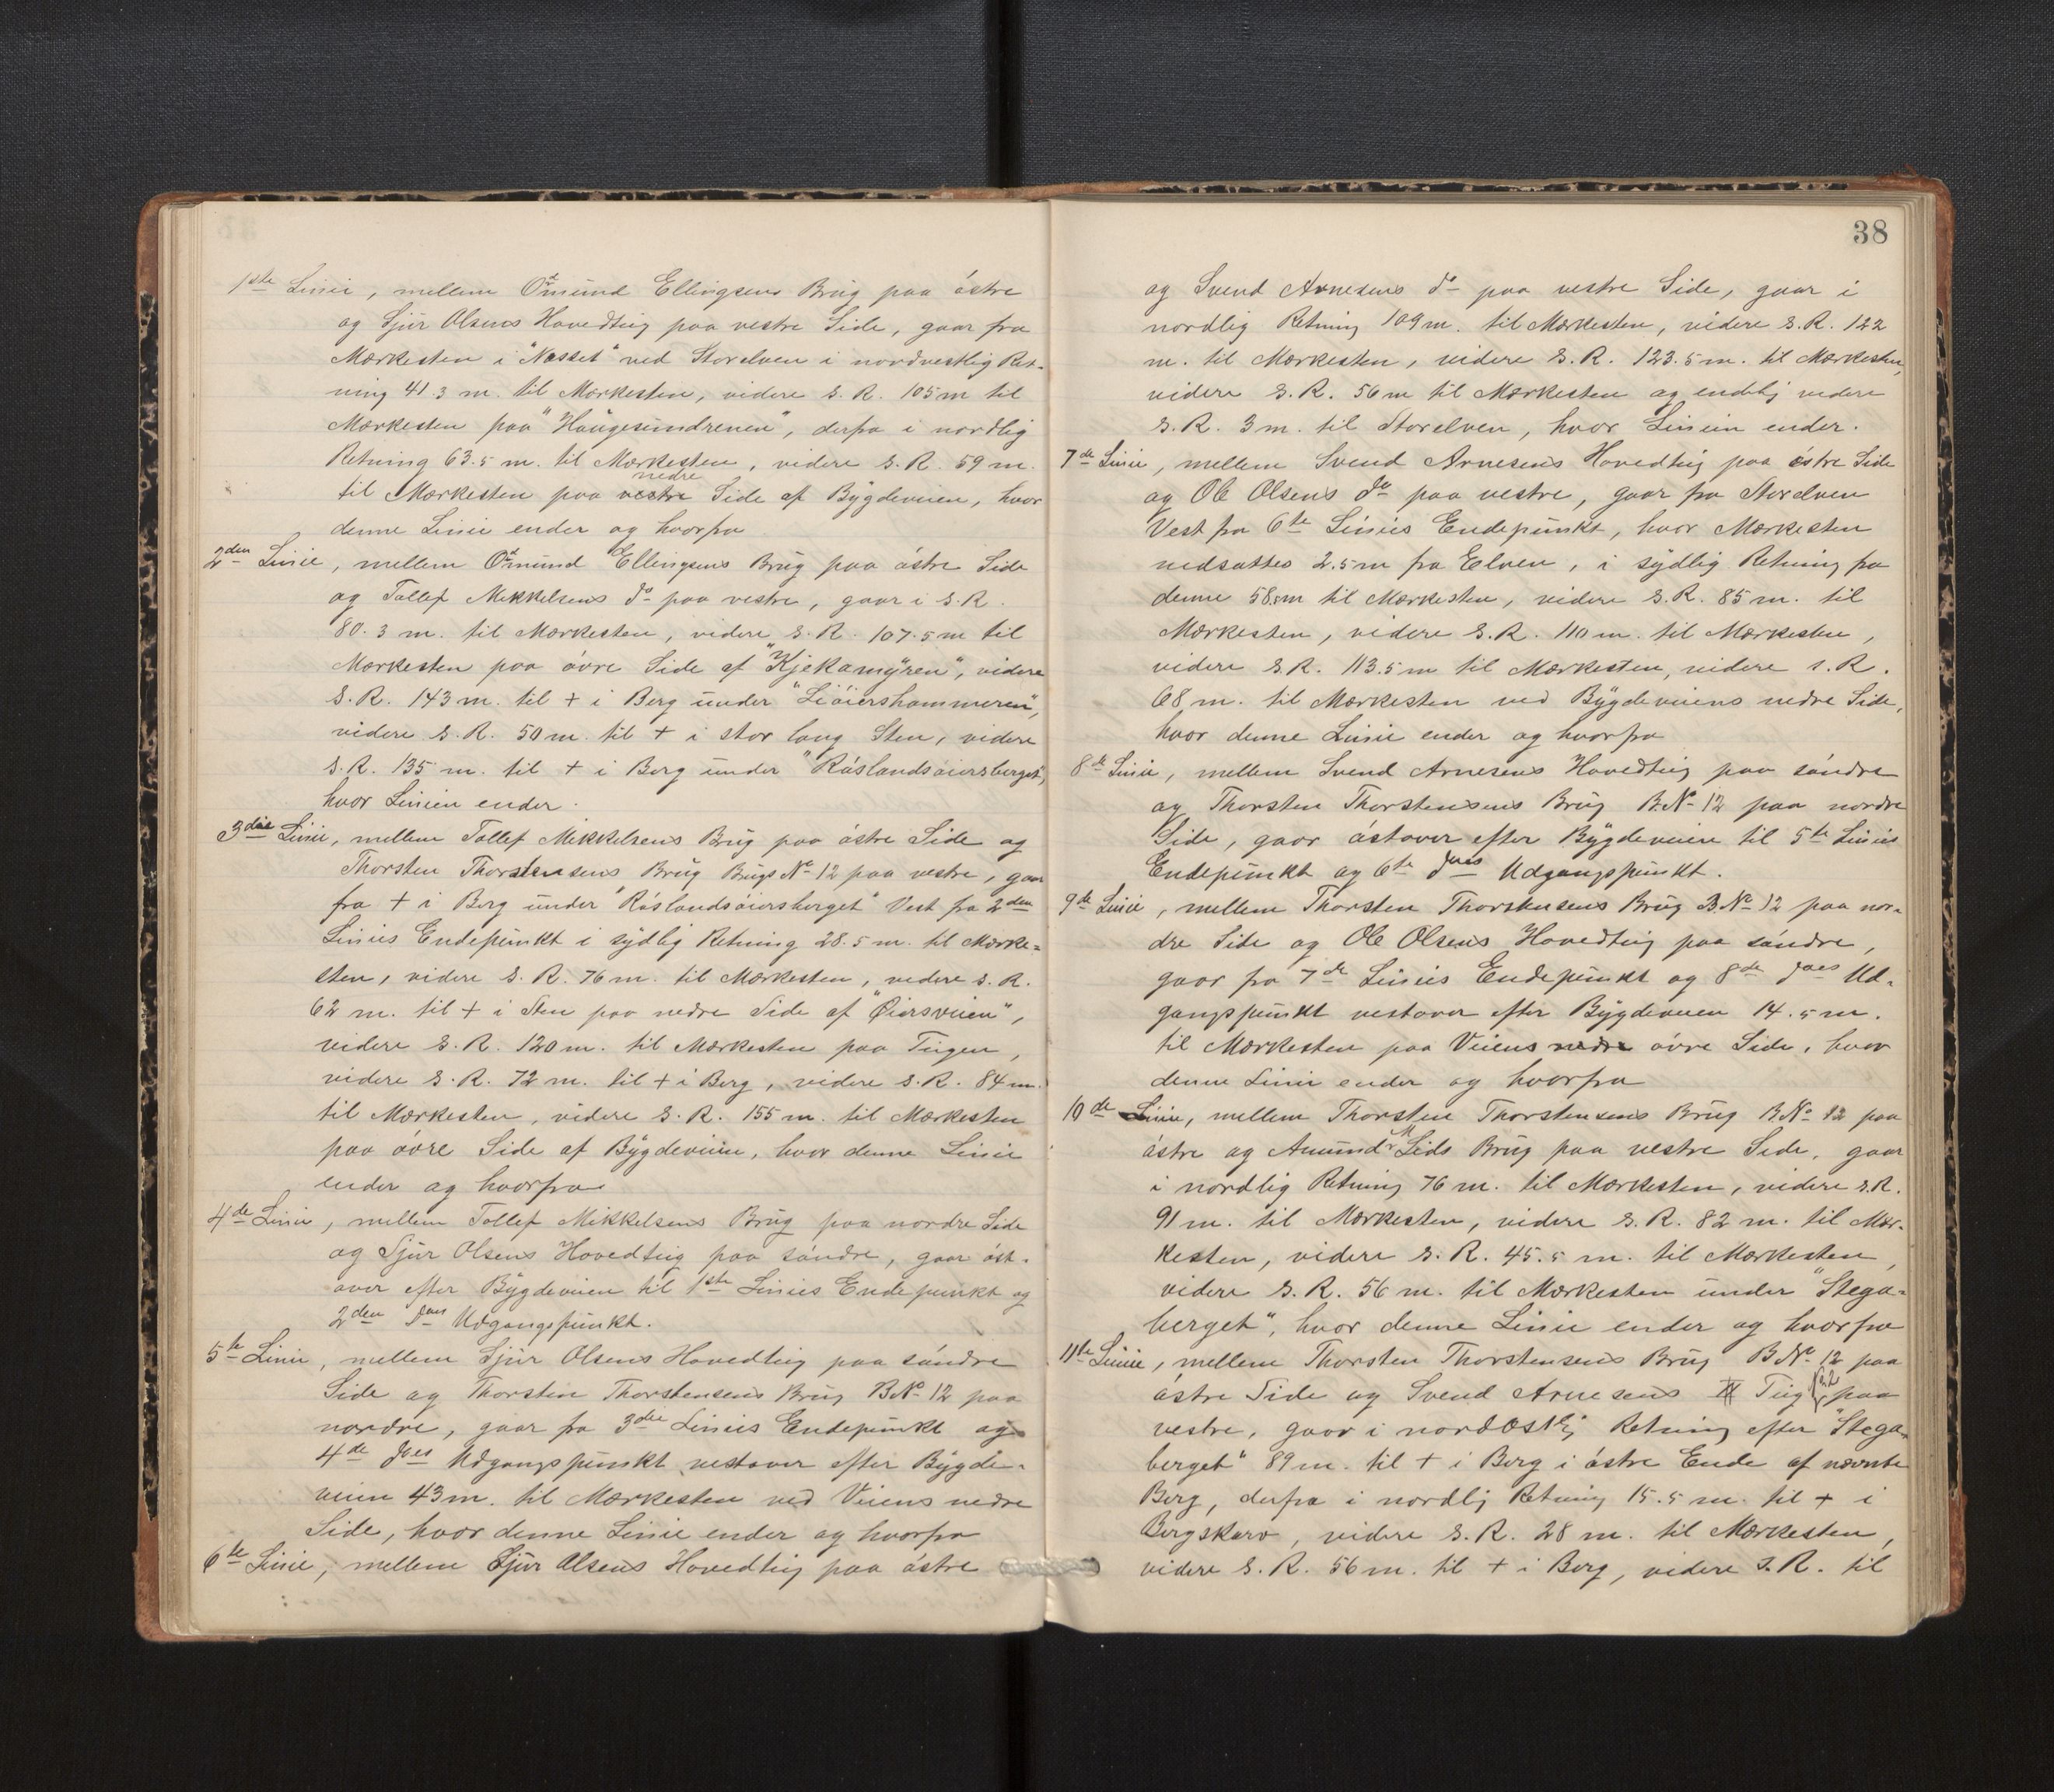 1ste Linie, mellem Omund Ellingsens Brug paa östre
og Sjur Olsens Hovedteig paa vestre Side, gaar fra
Mærkesten i "Nesset" ved Storelven i nordvestlig Ret-
ning 41.3 m. til Mærkesten, videre s. R. 105 m til
Mærkesten paa "Haugesundrenen", derfra i nordlig
Retning 63.5 m. til Mærkesten, videre s. R. 59 m.
nedre
til Mærkesten paa vestre Side af Bygdeveien, hvor
denne Linie ender og hvorfra
2den Linie, mellem Omund Ellingsens Brug paa östre Side
og Tollef Mikkelsens do paa vestre, gaar i s. R.
80.3 m. til Mærkesten, videre s. R. 107.5 m til
Mærkesten paa övre Side af "Kjekamyren", videre
s. R. 143 m. til + i Berg under "Liöiershammeren",
videre s. R. 50 m. til + i stor lang Sten, videre
s. R. 135 m. til + i Berg under "Råslandsöiersberget",
hvor Linien ender.
3die Linie, mellem Tollef Mikkelsens Brug paa östre Side og
Thorsten Thorstensens Brug Brugs No 12 paa vestre, gaar
fra + i Berg under "Råslandsöiersberget" Vest fra 2den
Linies Endepunkt i sydlig Retning 28.5 m. til Mærke-
sten, videre s. R. 76 m. til Mærkesten, videre s. R.
62 m. til + i Sten paa nedre Side af "Öiersveien",
videre s. R. 120 m. til Mærkesten paa Teigen,
videre s. R. 72 m. til + i Berg, videre s. R. 84 m.
til Mærkesten, videre s. R. 155 m. til Mærkesten
paa övre Side af Bygdeveien, hvor denne Linie
ender og hvorfra
4de Linie, mellem Tollef Mikkelsens Brug paa nordre Side
og Sjur Olsens Hovedteig paa söndre, gaar öst-
over efter Bygdeveien til 1ste Linies Endepunkt og
2den does Udgangspunkt.
5te Linie, mellem Sjur Olsens Hovedteig paa söndre
Side og Thorsten Thorstensens Brug B No 12 paa
nordre, gaar fra 3die Linies Endepunkt og
4de does Udgangspunkt vestover efter Bygde-
veien 43 m. til Mærkesten ved Veiens nedre
Side, hvor denne Linie ender og hvorfra
6te Linie, mellem Sjur Olsens Hovedteig paa östre
38
og Svend Arnesens do paa vestre Side, gaar i
nordlig Retning 109 m. til Mærkesten, videre s. R. 122
m. til Mærkesten, videre s. R. 123.5 m. til Mærkesten,
videre s. R. 56 m til Mærkesten og endelig videre
s. R. 3 m. til Storelven, hvor Linien ender.
7de Linie, mellem Svend Arnesens Hovedteig paa östre Side
og Ole Olsens do paa vestre, gaar fra Storelven
Vest fra 6te Linies Endepunkt, hvor Mærkesten
nedsattes 2.5 m fra Elven, i sydlig Retning fra
denne 58.5m til Mærkesten, videre s. R. 85 m. til
Mærkesten, videre s. R. 110 m. til Mærkesten,
videre s. R. 113.5 m til Mærkesten, videre s. R.
68 m. til Mærkesten ved Bygdeveiens nedre Side,
hvor denne Linie ender og hvorfra
8de Linie, mellem Svend Arnesens Hovedteig paa söndre
og Thorsten Thorstensens Brug B. No 12 paa nordre
Side, gaar östover efter Bygdeveien til 5te Linies
Endepunkt og 6te does Udgangspunkt.
9de Linie, mellem Thorsten Thorstensens Brug B. No 12 paa nor-
dre Side og Ole Olsens Hovedteig paa söndre,
gaar fra 7de Linies Endepunkt og 8de does Ud-
gangspunkt vestover efter Bygdeveien 14.5 m.
til Mærkesten paa Veiens nedre övre Side, hvor
denne Linie ender og hvorfra
10de Linie, mellem Thorsten Thorstensens Brug B No 12 paa
östre og Amund M Lids Brug paa vestre Side, gaar
i nordlig Retning 76 m. til Mærkesten, videre s. R.
91 m. til Mærkesten, videre s. R. 82 m. til Mær-
kesten, videre s. R. 45.5 m. til Mærkesten,
videre s. R. 56 m. til Mærkesten under "Stega-
berget", hvor denne Linie ender og hvorfra
11te Linie, mellem Thorsten Thorstensens Brug B No 12 paa
östre Side og Svend Arnesens Teig paa
vestre, gaar i nordöstlig Retning efter "Stega-
berget" 89 m. til + i Berg i östre Ende af nævnte
Berg, derfra i nordlig Retning 15.5 m. til + i
Bergskarv, videre s. R. 28 m. til Mærkesten,
videre s. R. 56 m. til + i Berg, videre s. R. til